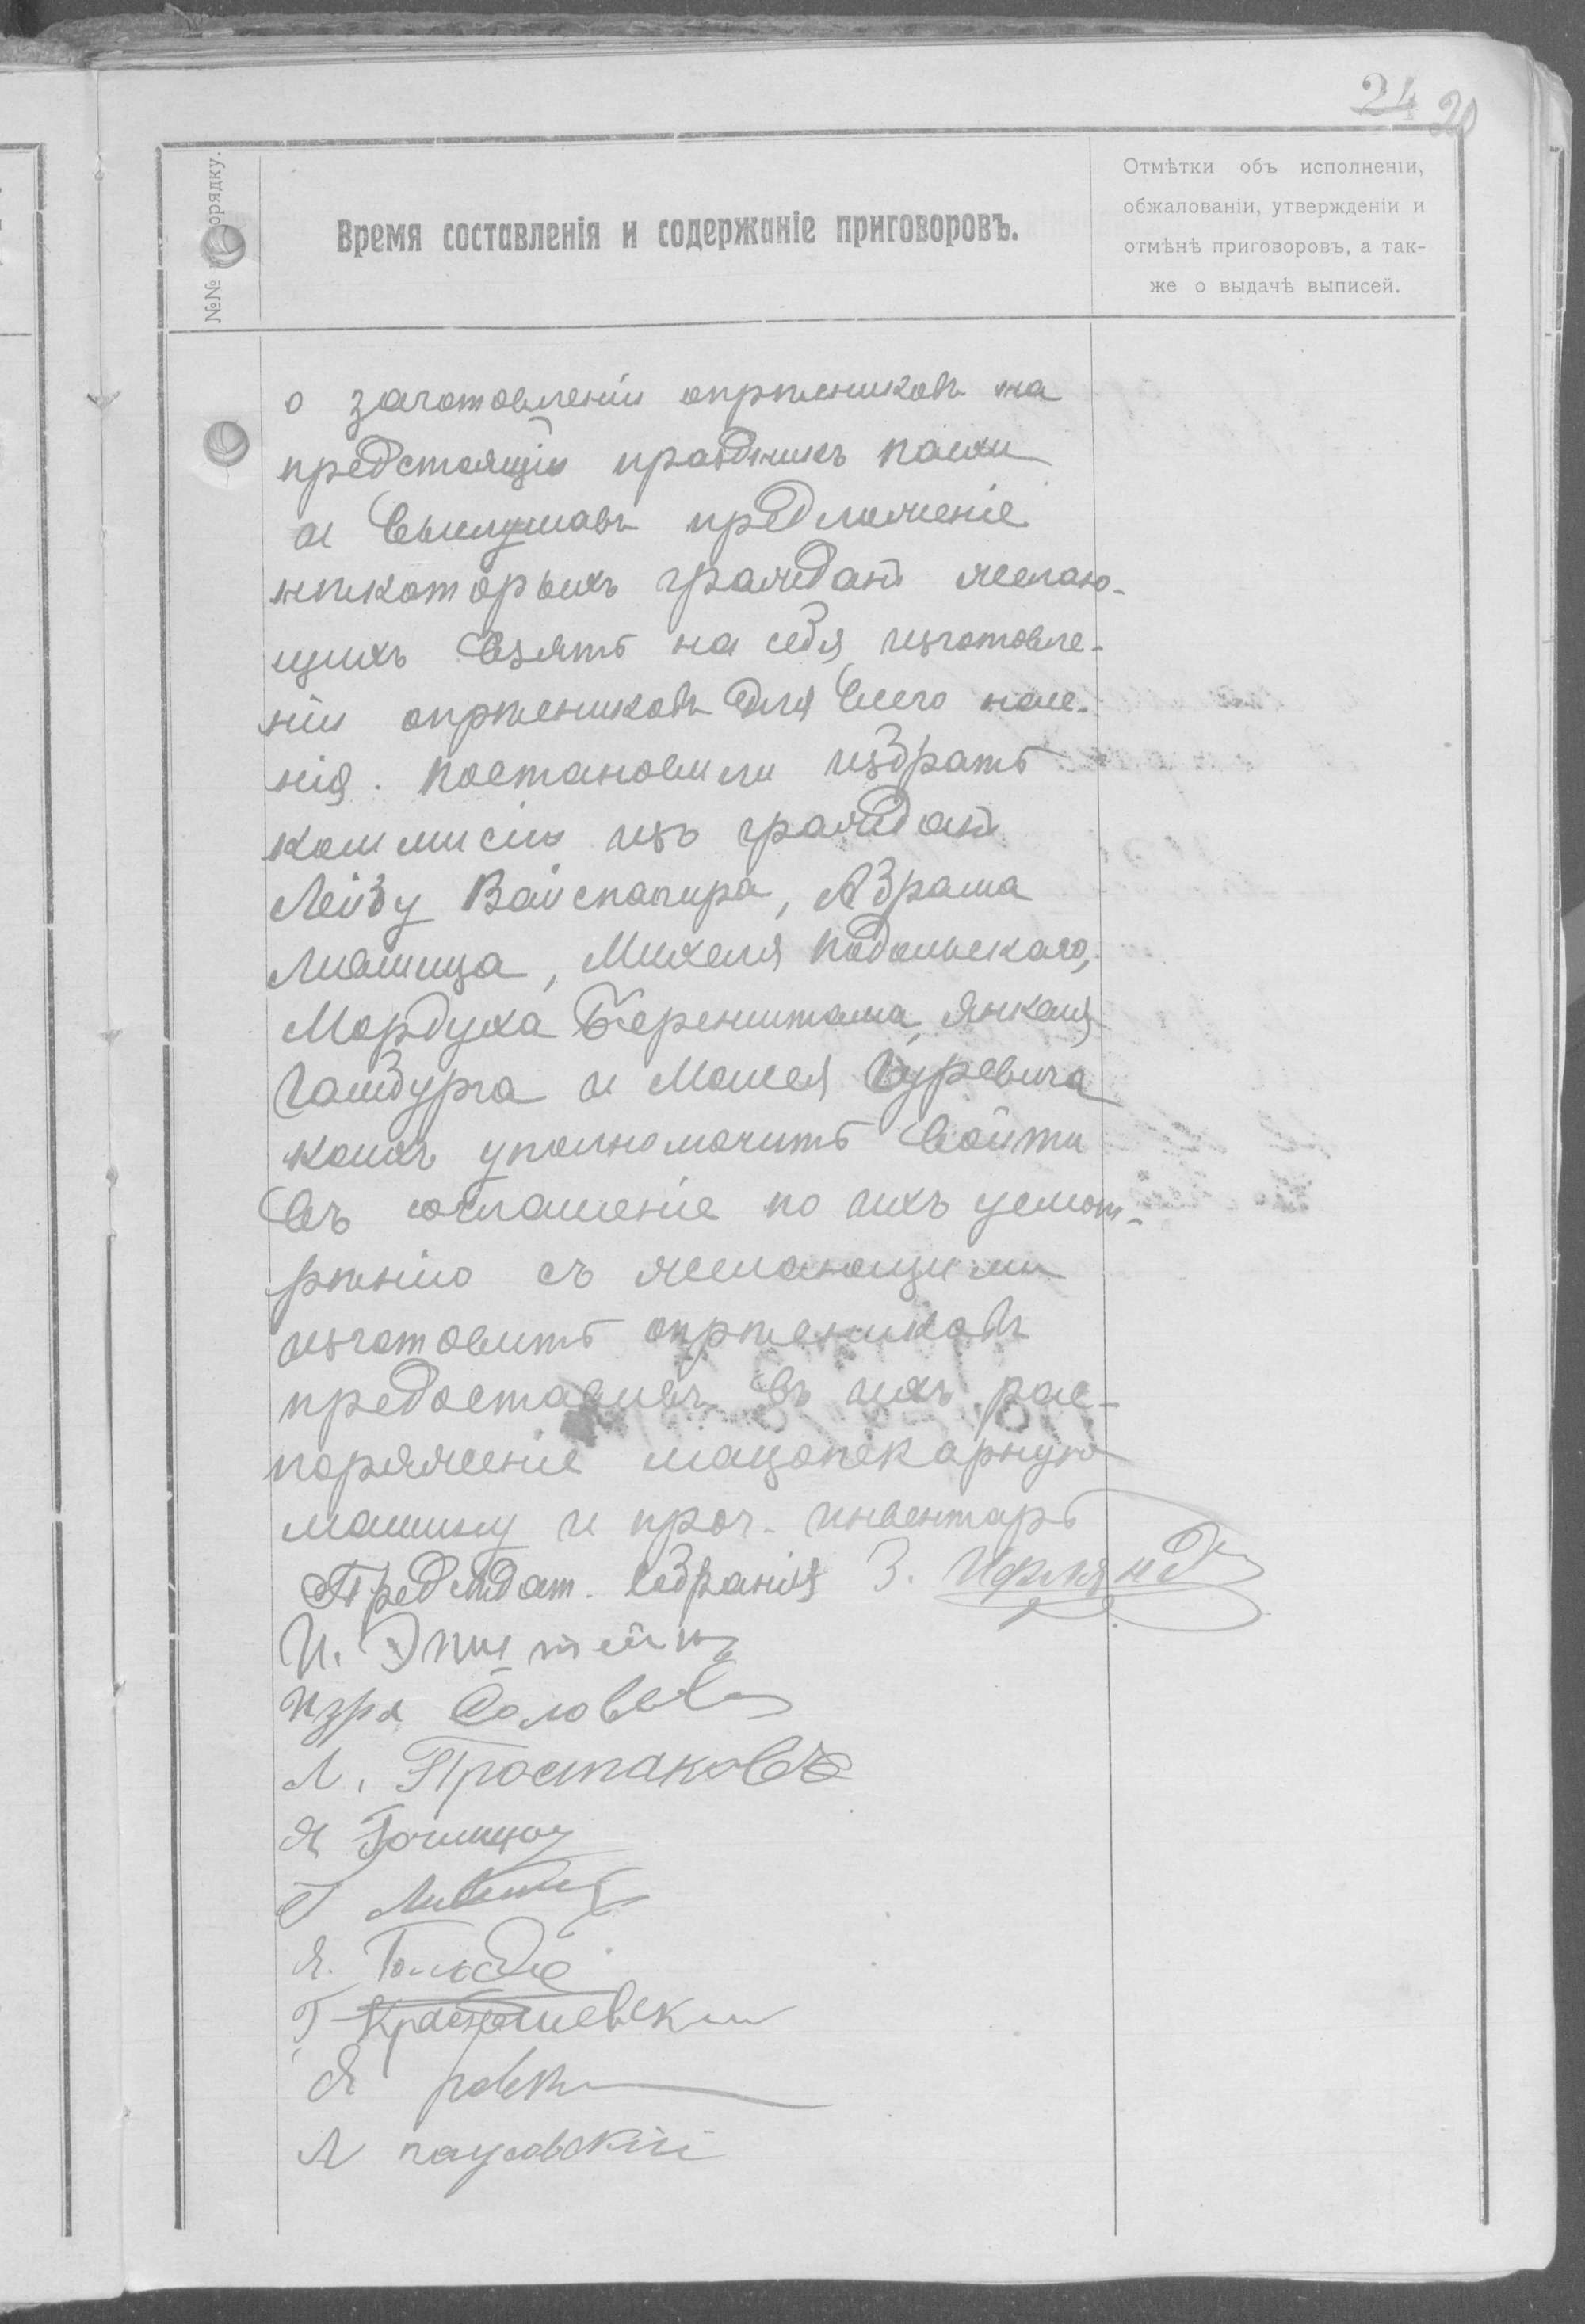 24 20
№№ порядку.
Время составленія и содержаніе приговоровъ.
Отмѣтки объ исполненіи,
обжалованіи, утвержденіи и
отмѣнѣ приговоровъ, а так-
же о выдачѣ выписей.
о заготовленіи опрѣсниковъ на
предстоящій праздникъ пасхи
и выслушавъ предложеніе
нѣкоторыхъ гражданъ желаю-
щихъ взять на себя изготовле-
ніи опрѣсниковъ для всего насе-
нія. постановили избрать
коммисію изъ гражданъ
Лейбу Вайспапира, Абрама
Лившица, Михеля Подольскаго,
Мордуха Беренштама, Янкеля
Гамбурга и Мошея Гуревича
коихъ уполномочить войти
въ соглашеніе по ихъ усмот-
рѣнію съ желающими
изготовить опрѣсниковъ
предоставивъ въ ихъ рас-
поряженіе мацопекарную
машину и проч. инвентарь
Предсѣдат. Собранія З.
И. Эпштейнъ
Л. Простаковъ
Г
Я.
Г Красношевски
Я
Л